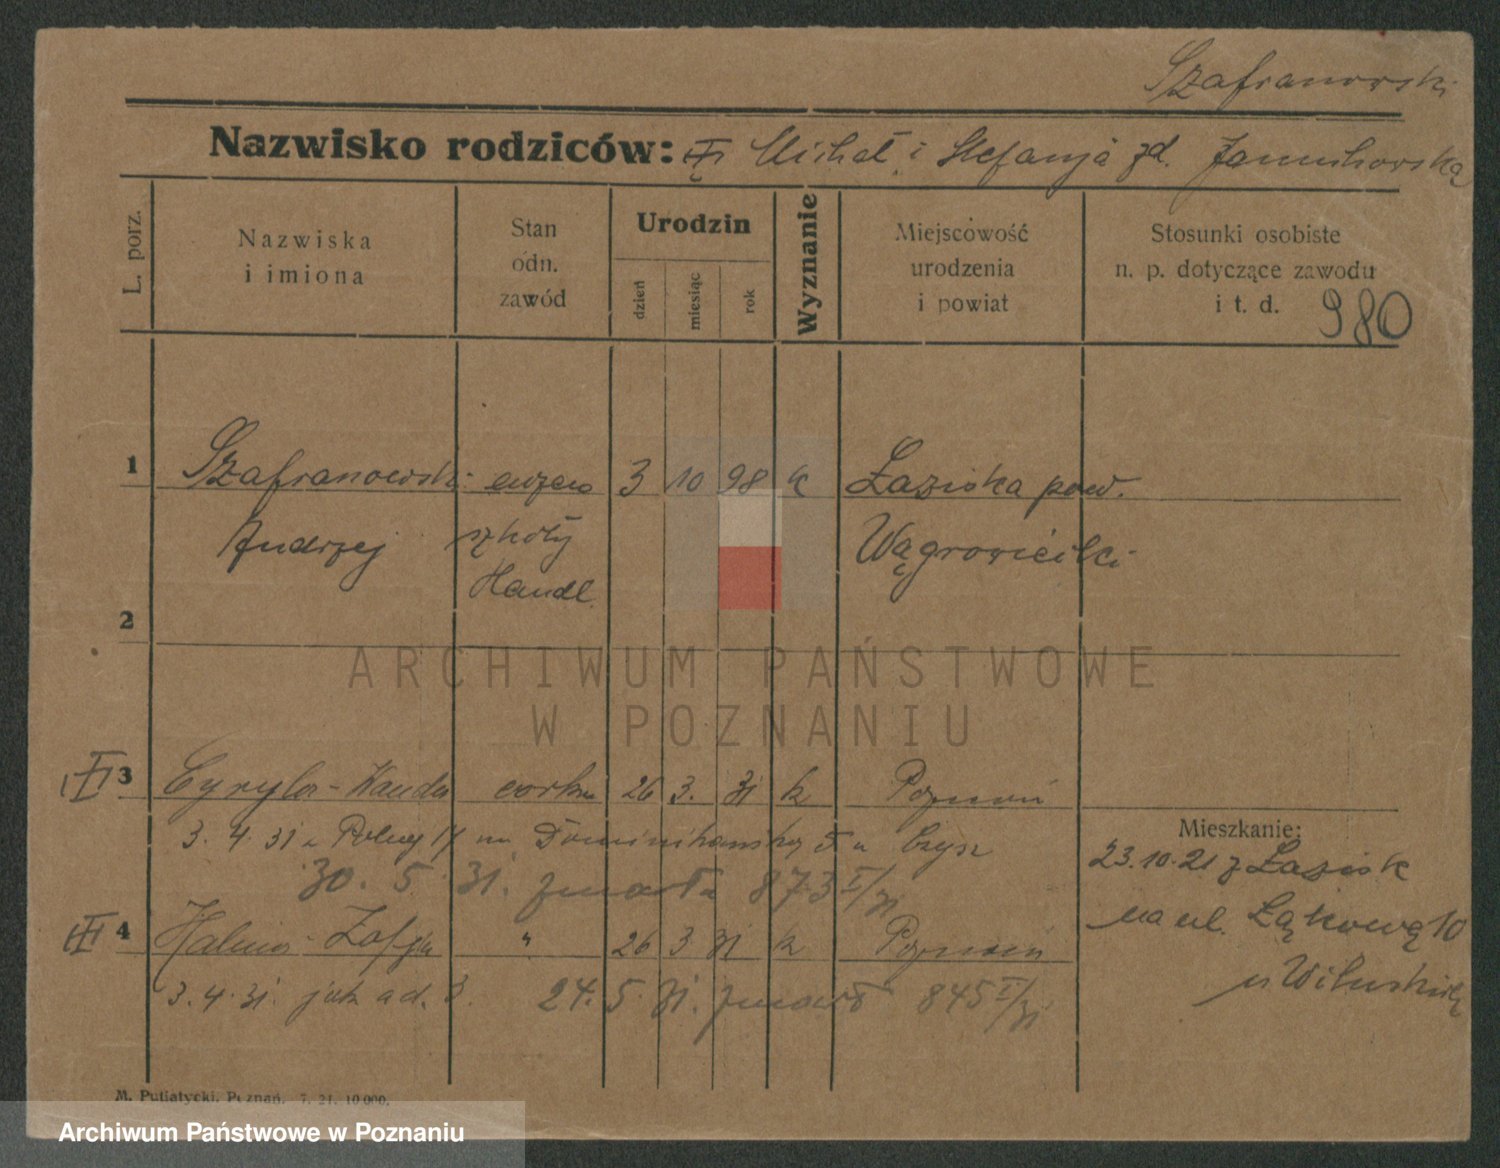 Szafranowski
Nazwisko rodziców: Michał i Stefanja zd.
L. porz.
Nazwiska
i imiona
Stan
odn.
zawód
Urodzin
dzień
miesiąc
rok
Wyznanie
Miejscowość
urodzenia
i powiat
Stosunki osobiste
n. p. dotyczące zawodu
i t. d. 980
1 Szafranowski uczeń 3 10 98 k Łaziska pow.
Andrzej szkoły Wągrowiecki
Handl.
2
ARCHIWUM PAŃSTWOWE
W POZNANIU
3 Cyryla-Wanda córka 26 3. 31 k Poznań
3. 4. 31 z Polnej 17 na Dominikańską 5 u
30. 5. 31. zmarła 873 I/31
Mieszkanie:
23.10.21 z Łazisk
na ul. Łąkową 10
u
4 Halina-Zofja " 26 3 31 k Poznań
3. 4. 31. jak ad. 3. 24. 5. 31. zmarła 845 I/31
M. Putiatycki, Poznań. 7. 21. 10.000.
Archiwum Państwowe w Poznaniu